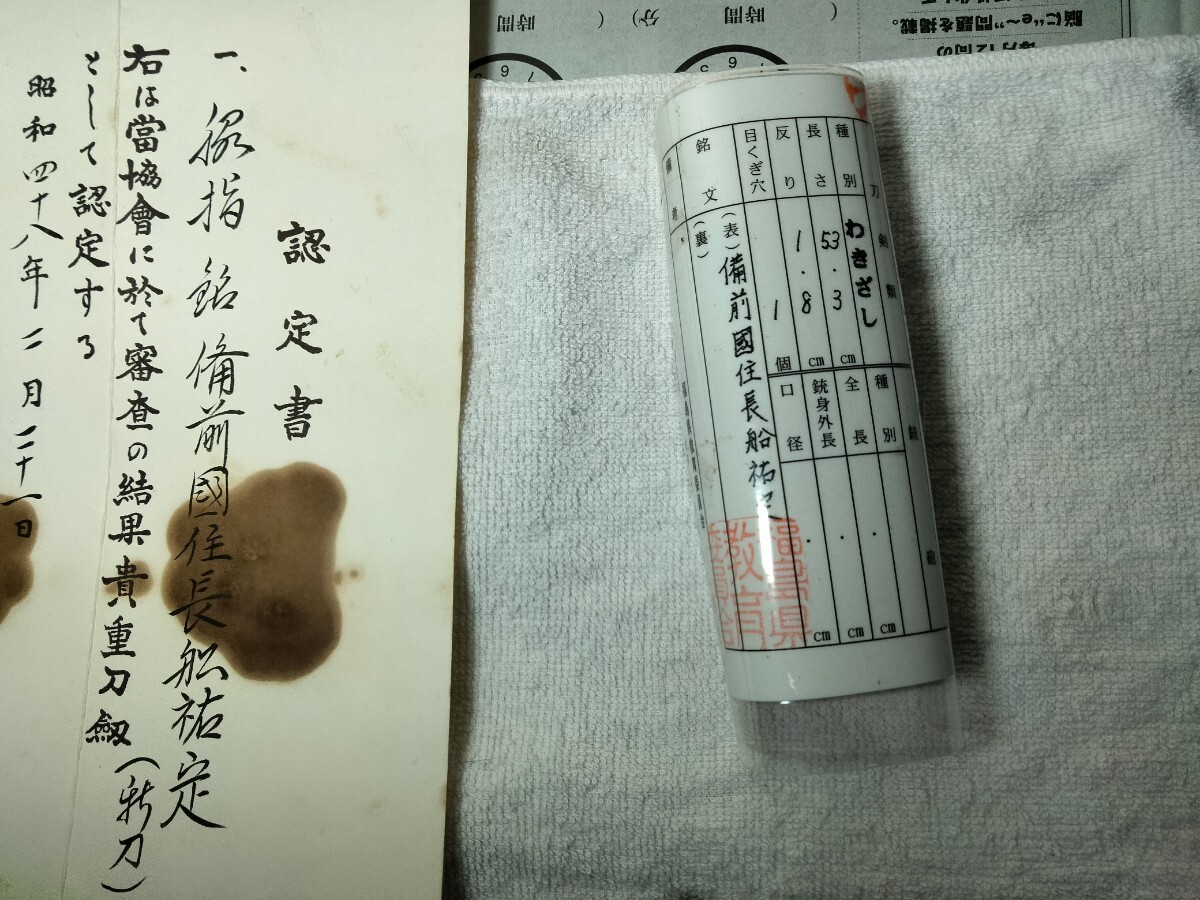 認定書
一、脇指 銘 備前國住長船祐定
右は當協會に於て審査の結果貴重刀劔(新刀)
として認定する
昭和四十八年二月二十一日
刀剣類
種別 わきざし
長さ 53.3cm
反り 1.8cm
目くぎ穴 1個
銘文 (表)備前國住長船祐定
(裏)
備考
銃砲
種別
全長 . cm
銃身外長 . cm
口径 . cm
福島県教育委員会
時間 ( 分) 時間 (
毎月12問の
脳に“e〜”問題を掲載。
7 6 5
7 6